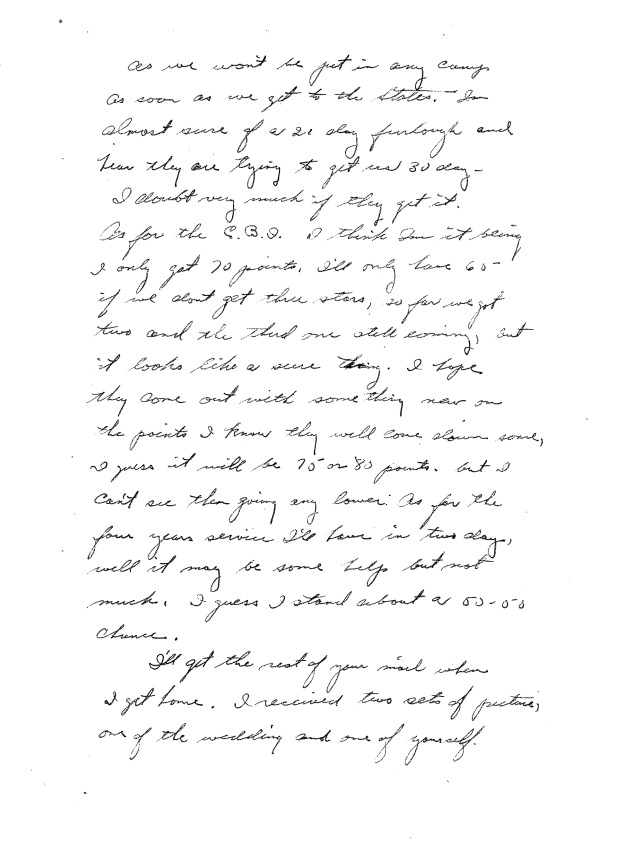 as we won't be put in any camp
as soon as we get to the States. - Im
almost sure of a 21 day furlough and
hear they are trying to get us 30 day -
I doubt very much if they get it.
As for the C.B.I. I think Im it being
I only got 70 points, I'll only have 65 -
if we dont get three stars, so far we got
two and the third one still coming, but
it looks like a sure thing. I hope
they come out with something new on
the points I know they will come down some,
I guess it will be 75 or 80 points. but I
Can't see them going any lower. As for the
four years service I'll have in two days,
well it may be some help but not
much. I guess I stand about a 50-50
chance.
I'll get the rest of your mail when
I get home. I received two sets of pictures,
one of the wedding and one of yourself.